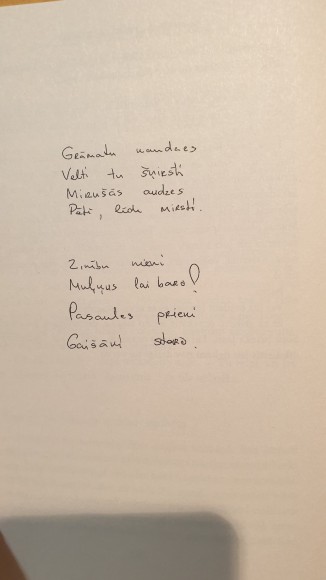 Grāmatu kaudzes
Velti tu šķirsti
Mirušās audzes
Pēti, līdz mirsti.
Zinību nieki
Muļķus lai baro!
Pasaules prieki
Gaišāki staro.